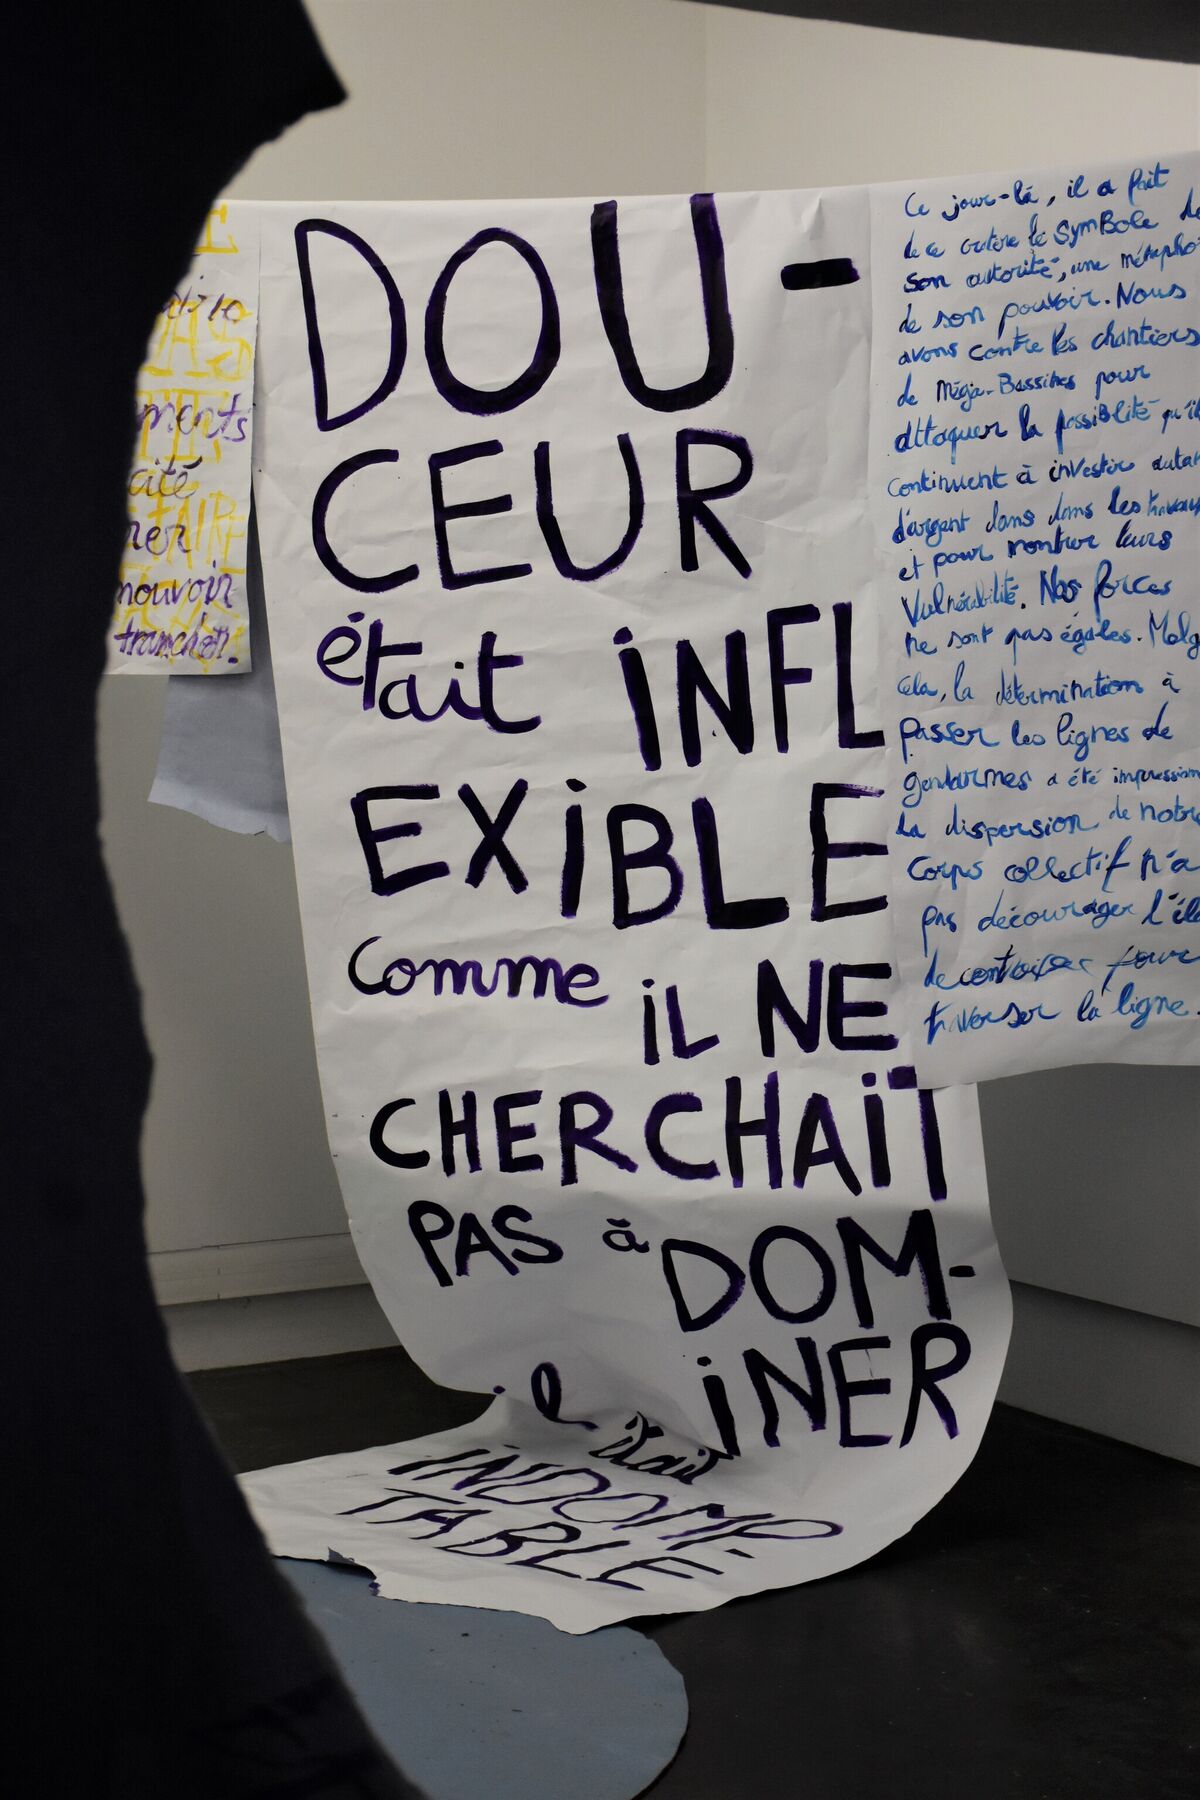 ments
cité
mouvoir
trancher.
DOU-
CEUR
était INFL
EXIBLE
comme IL NE
CHERCHAIT
PAS à DOM-
INER
il était
INDOMP-
TABLE
Ce jour-là, il a fait
de ce cratère le SymBole de
son autorité, une métapho
de son pouvoir. Nous
avons contre les chantiers
de Méga-Bassines pour
attaquer la possiblité qu'il
continuent à investir autan
d'argent dans dans les travaux
et pour montrer leurs
Vulnérabilité. Nos forces
ne sont pas égales. Malg
cela, la détermination à
passer les lignes de
gendarmes a été impression
La dispersion de notre
corps collectif n'a
pas décourager l'éla
de
traverser la ligne.